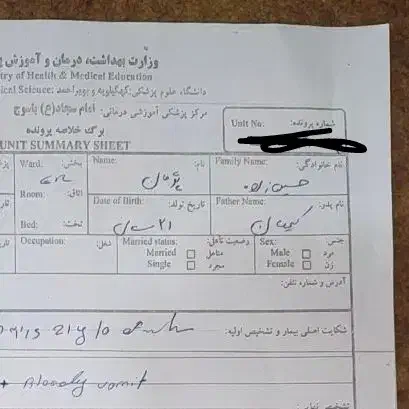 وزارت بهداشت، درمان و آموزش
try of Health & Medical Education
دانشگاه علوم پزشکی: کهگیلویه و بویراحمد :ical Science
مرکز پزشکی آموزشی درمانی: امام سجاد(ع) یاسوج
برگ خلاصه پرونده
UNIT SUMMARY SHEET
Unit No: شماره پرونده:
Ward: بخش: Name: نام: Family Name: نام خانوادگی:
پژمان حسین زاده
Room: اتاق: Date of Birth: تاریخ تولد: Father Name: نام پدر:
۲۱ سال
Bed: تخت:
Occupation: شغل: Married status: وضعیت تأهل: Sex: جنس:
Married متاهل Male مرد
Single مجرد Female زن
آدرس و شماره تلفن:
شکایت اصلی بیمار و تشخیص اولیه:
21 y/o
+ Bloody vomit